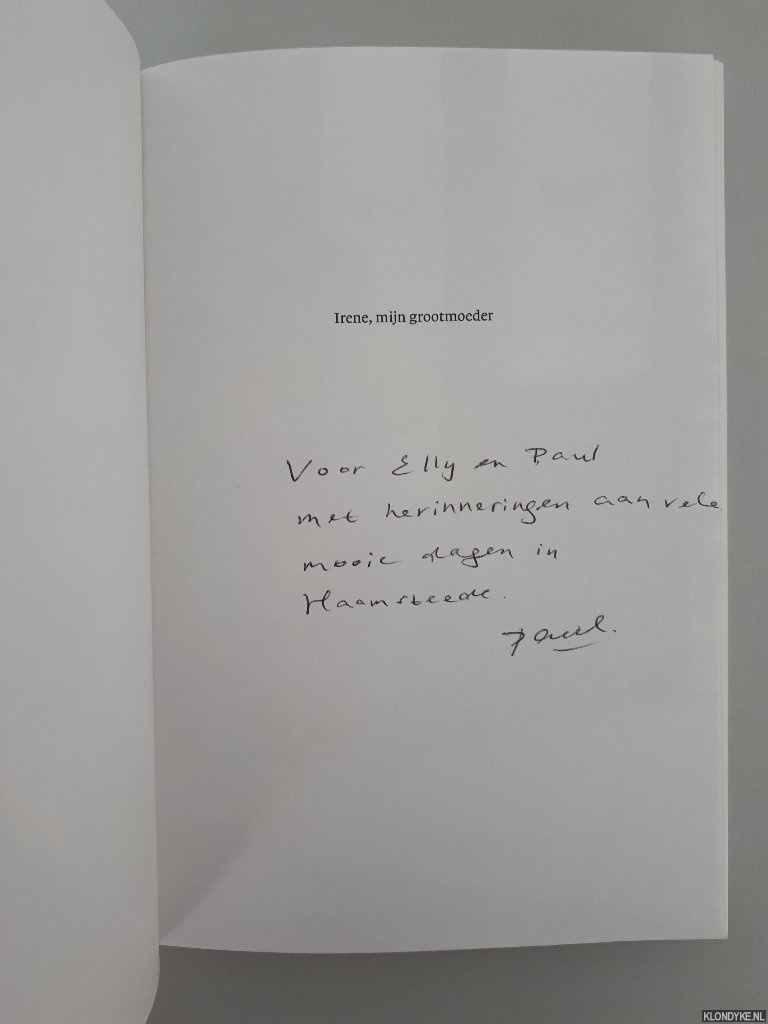 Irene, mijn grootmoeder
Voor Elly en Paul
met herinneringen aan vele
mooie dagen in
Haamsteede.
Paul.
KLONDYKE.NL